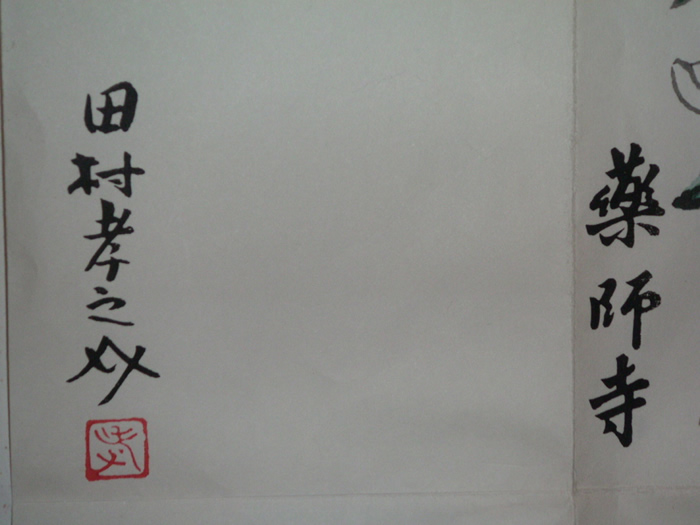 藥師寺
田村孝之介